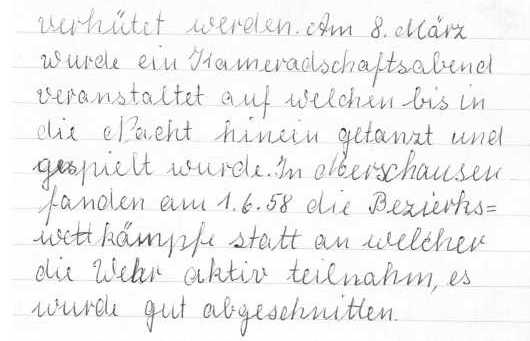 verhütet werden. Am 8. März
wurde ein Kameradschaftsabend
veranstaltet auf welchen bis in
die Nacht hinein getanzt und
gespielt wurde. In Oberschausen
fanden am 1.6.58 die Bezierks=
wettkämpfe statt an welcher
die Wehr aktiv teilnahm, es
wurde gut abgeschnitten.